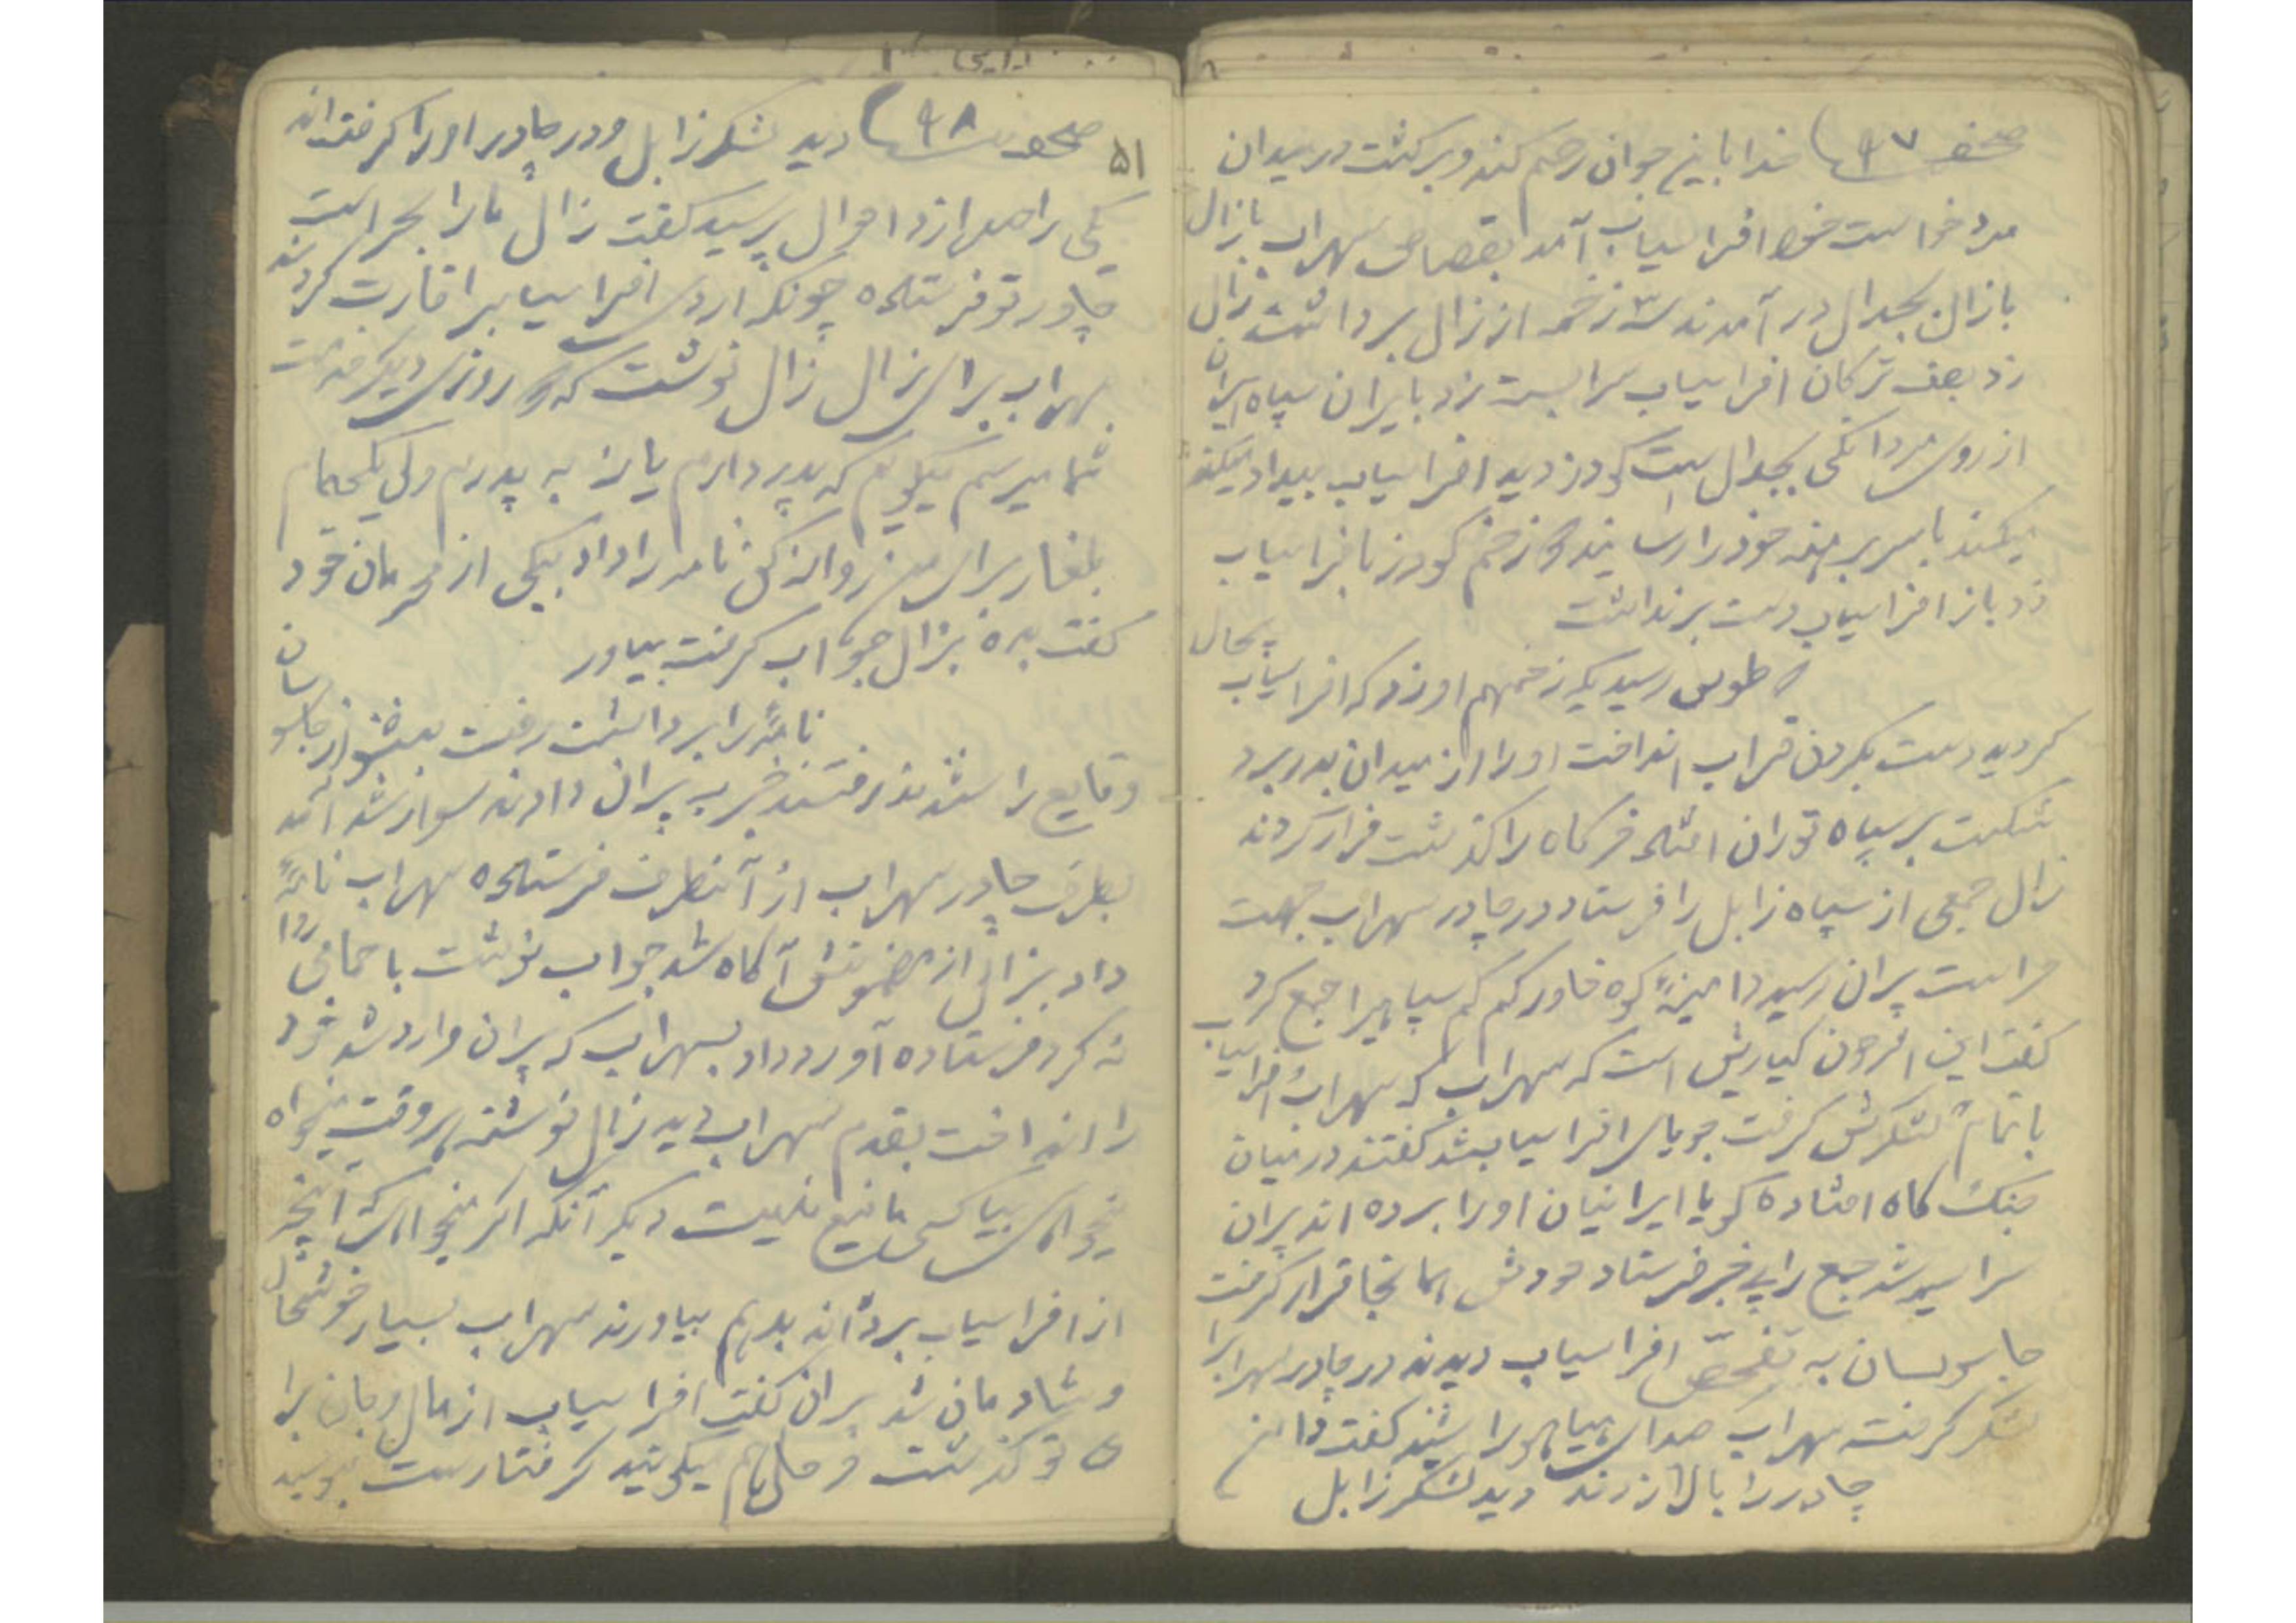 صحفه ۹۷ خدا باین جوان رحم کند و برگشت در میدان
مدد خواست خود افراسیاب آمد بقصاص سهراب با زال
با زال بجدال در آمدند سه زخم از زال برداشت زال
زد بصف ترکان افراسیاب سرا بست زد بایران سپاه ایران
از روی مردانگی بجدال است گودرز دید افراسیاب بیداد میکند
میکند با سر برهنه خود را رسانید زخم گودرز بافراسیاب
زد باز افراسیاب دست برنداشت
طوس رسید یک زخم هم او زد که افراسیاب بیحال
گردید دست بگردن قراب انداخت او را از میدان بدر برد
شکست بر سپاه توران افتاد خرگاه را گذشت فرار کردند
زال جمعی از سپاه زابل را فرستاد در چادر سهراب جهت
حراست پیران رسید دامینهٔ کوه خاور کم کم سپاهیرا جمع کرد
گفت این افرون کیاریش است که سهراب که سهراب افراسیاب
با تمام لشکرش گرفت جویای افراسیاب شد گفتند در میان
جنگ گاه افتاده گویا ایرانیان او را برده اند پیران
سراسیمه شد جمع را پی خبر فرستاد خودش همانجا قرار گرفت
جاسوسان به تفحص افراسیاب دیدند در چادر سهراب را
لشکر گرفته سهراب صدای هیاهو را شنید گفت دامن
چادر را بالا زدند دید لشکر زابل
۵۱
صحفه ۹۸ دید لشکر زابل دور چادر او را گرفته اند
یکی را صدا زد احوال پرسید گفت زال ما را بحراست
چادر تو فرستاده چونکه اردوی افراسیاب را غارت کردند
سهراب برای زال نوشت که روزی دیگر خدمت
شما میرسم میگویم که پدر دارم یا نه به پدرم ولی یکجام
بلغار برای من روانه کن نامه را داد بیکی از محرمان خود
گفت بده بزال جواب گرفت بیاور
نامهٔ را برداشت رفت جاسوسان
وقایع را شنیدند رفتند خبر به پیران دادند سوار شد آمد
بطرف چادر سهراب از آنطرف فرستاده سهراب نامهٔ
داد بزال از مضمونش آگاه شد جواب نوشت با جامی روا
نه کرد فرستاده آورد داد بسهراب که پیران وارد شد خود
را انداخت بقدم سهراب دید زال نوشته هر وقت میخواه
میخواهی بیا کسی مانع نیست دیگر آنکه اگر میخواهی آنچه
از افراسیاب برده اند بدهم بیاورند سهراب بسیار خوشحال
و شادمان شد پیران گفت افراسیاب از مال و جان برا
ی تو گذشت و حالا هم میگویند گرفتار است